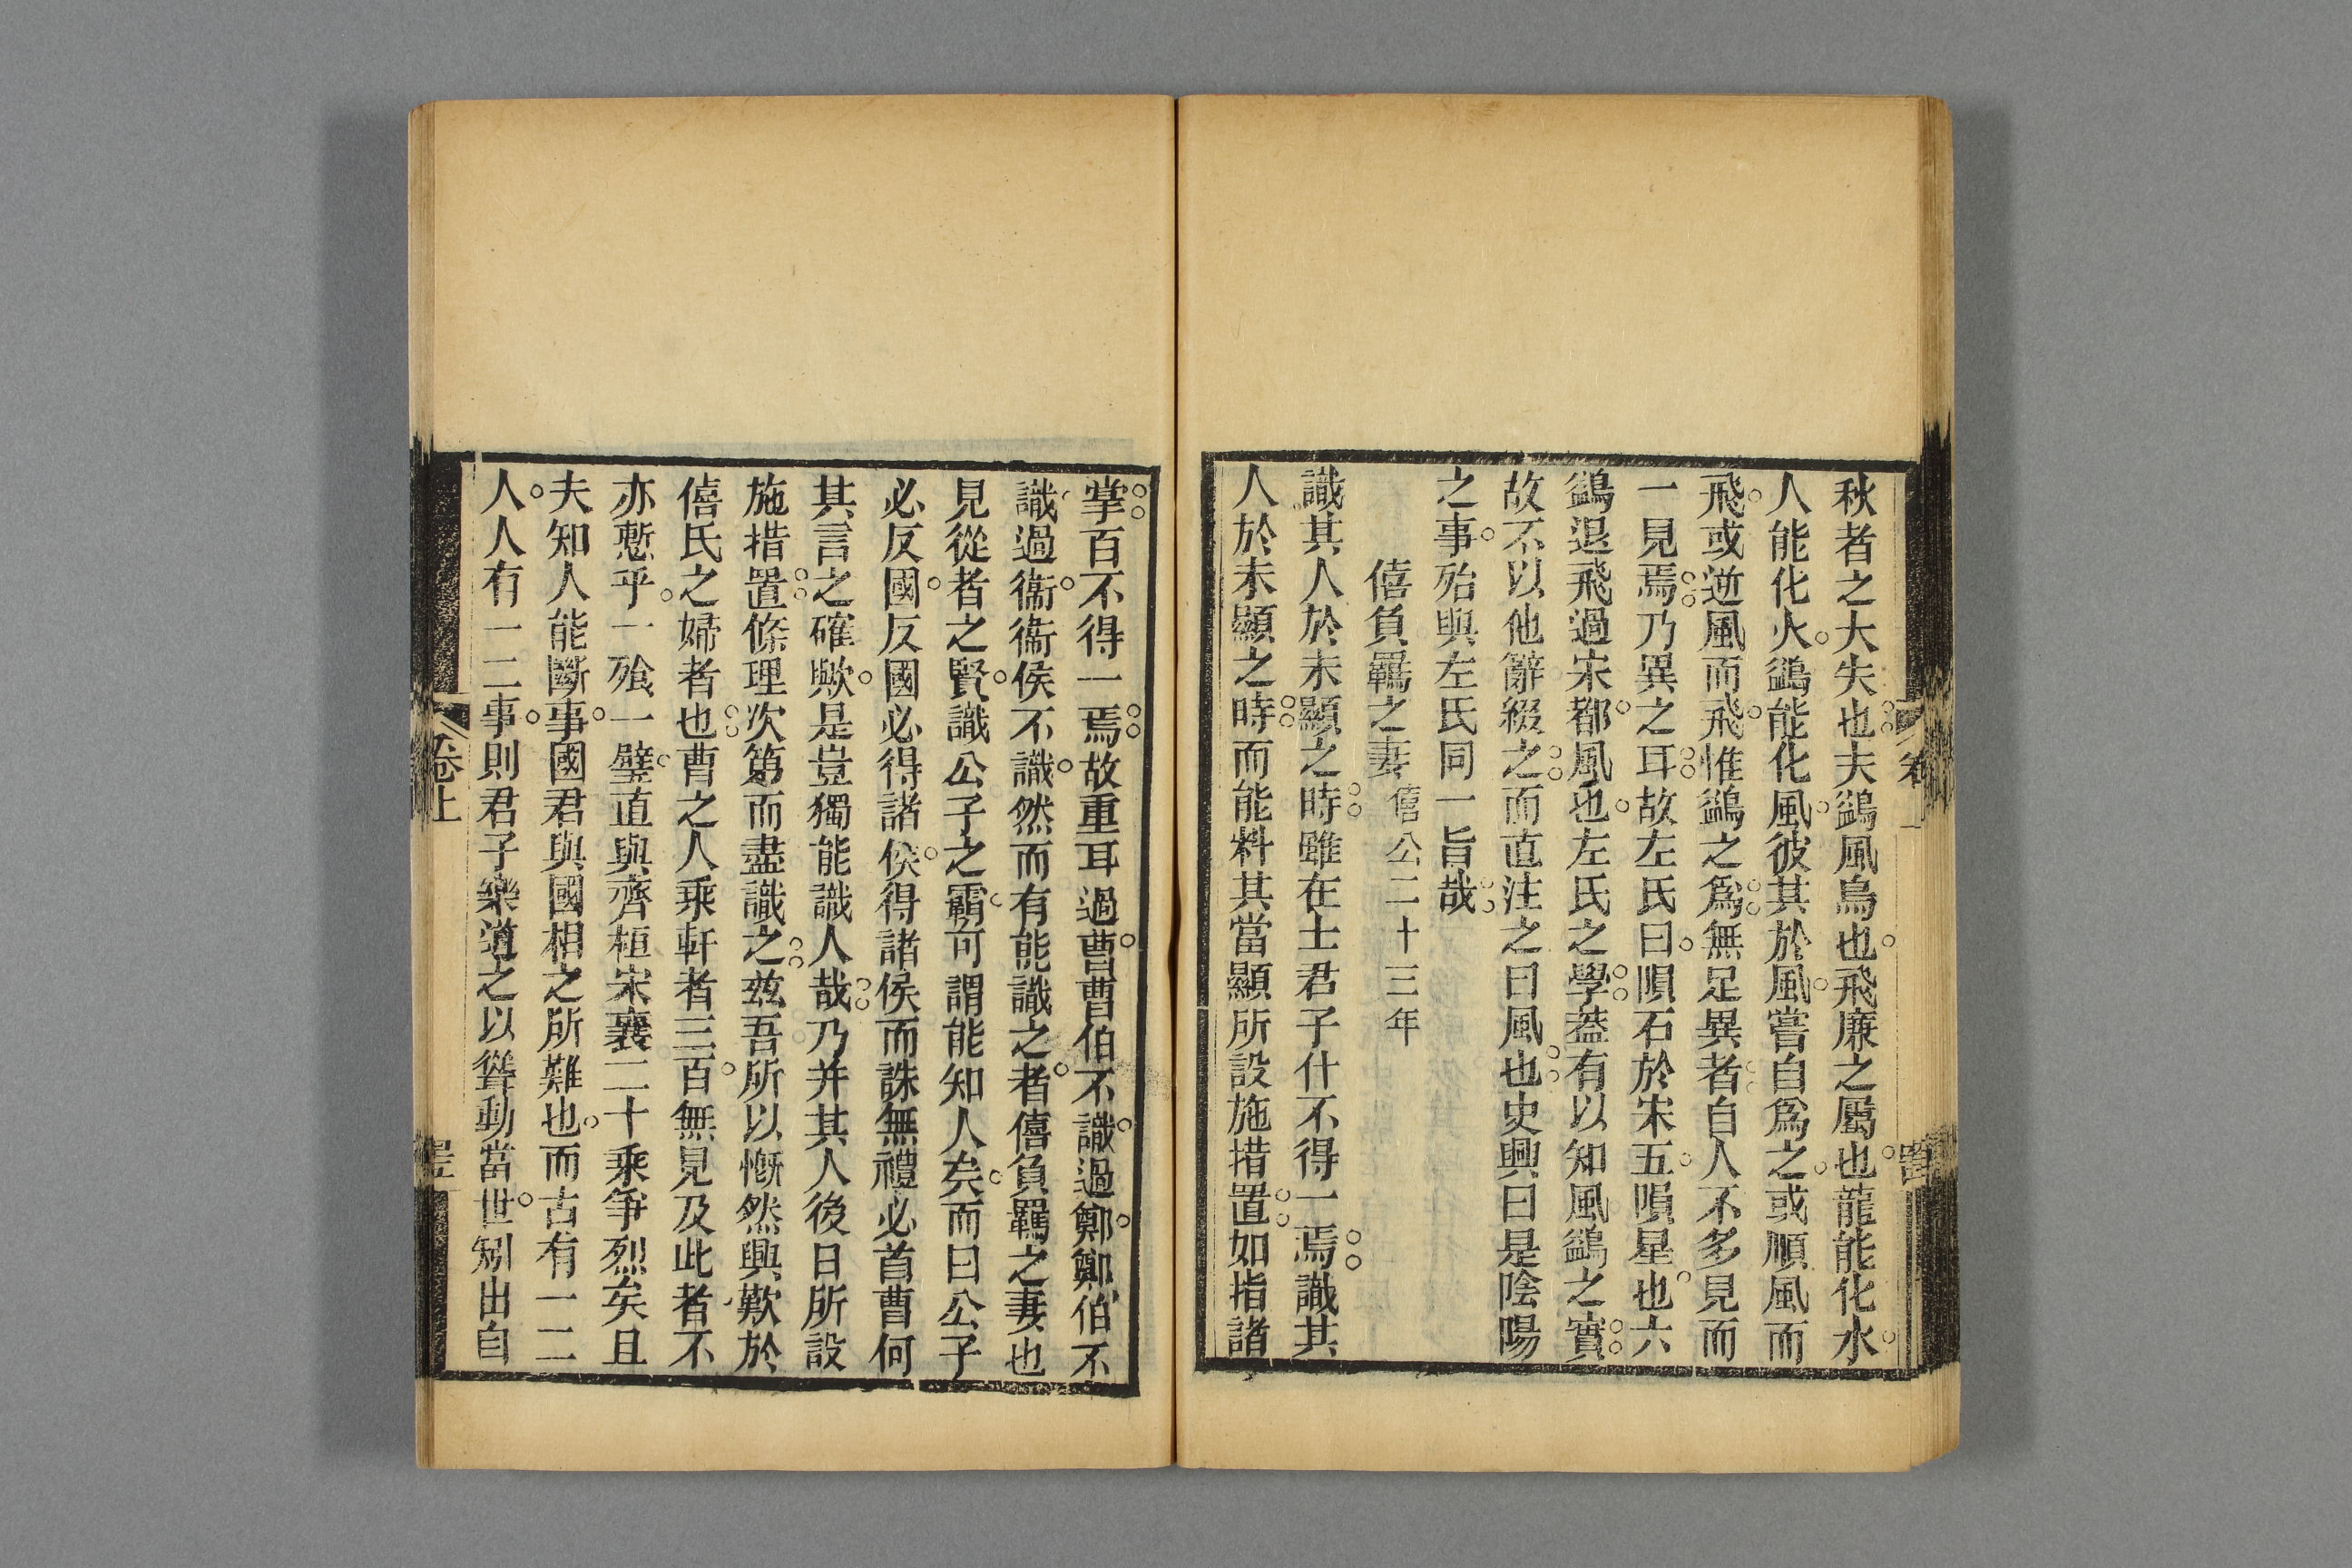 秋者之大失也夫鷁風鳥也飛廉之屬也龍能化水
人能化火鷁能化風彼其於風嘗自爲之或順風而
飛或逆風而飛惟鷁之爲無足異者自人不多見而
一見焉乃異之耳故左氏曰隕石於宋五隕星也六
鷁退飛過宋都風也左氏之學葢有以知風鷁之實
故不以他辭綴之而直注之曰風也史興曰是陰陽
之事殆與左氏同一旨哉
僖負羈之妻 僖公二十三年
識其人於未顯之時雖在士君子什不得一焉識其
人於未顯之時而能料其當顯所設施措置如指諸
掌百不得一焉故重耳過曹曹伯不識過鄭鄭伯不
識過衞衞侯不識然而有能識之者僖負羈之妻也
見從者之賢識公子之霸可謂能知人矣而曰公子
必反國反國必得諸侯得諸侯而誅無禮必首曹何
其言之確歟是豈獨能識人哉乃并其人後日所設
施措置條理次第而盡識之兹吾所以慨然興歎於
僖氏之婦者也曹之人乘軒者三百無見及此者不
亦慙乎一飱一璧直與齊桓宋襄二十乘爭烈矣且
夫知人能斷事國君與國相之所難也而古有一二
人人有一二事則君子樂道之以聳動當世矧出自
卷上